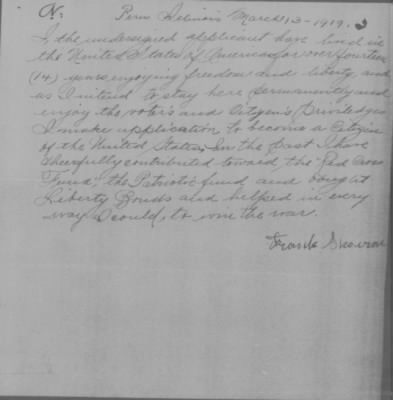 Peru Illinois March 13 - 1919.
I the undersigned applicant have lived in
the United States of America for over fourteen
(14) years enjoying freedom and liberty, and
as I intend to stay here permanently and
enjoy the voters and Citizen's Priviledges
I make application to become a Citizen
of the United States. In the past I have
cheerfully contributed toward the Red Cross
Fund, the Patriotic fund and bought
Liberty Bonds and helped in every
way I could, to win the war.
Frank